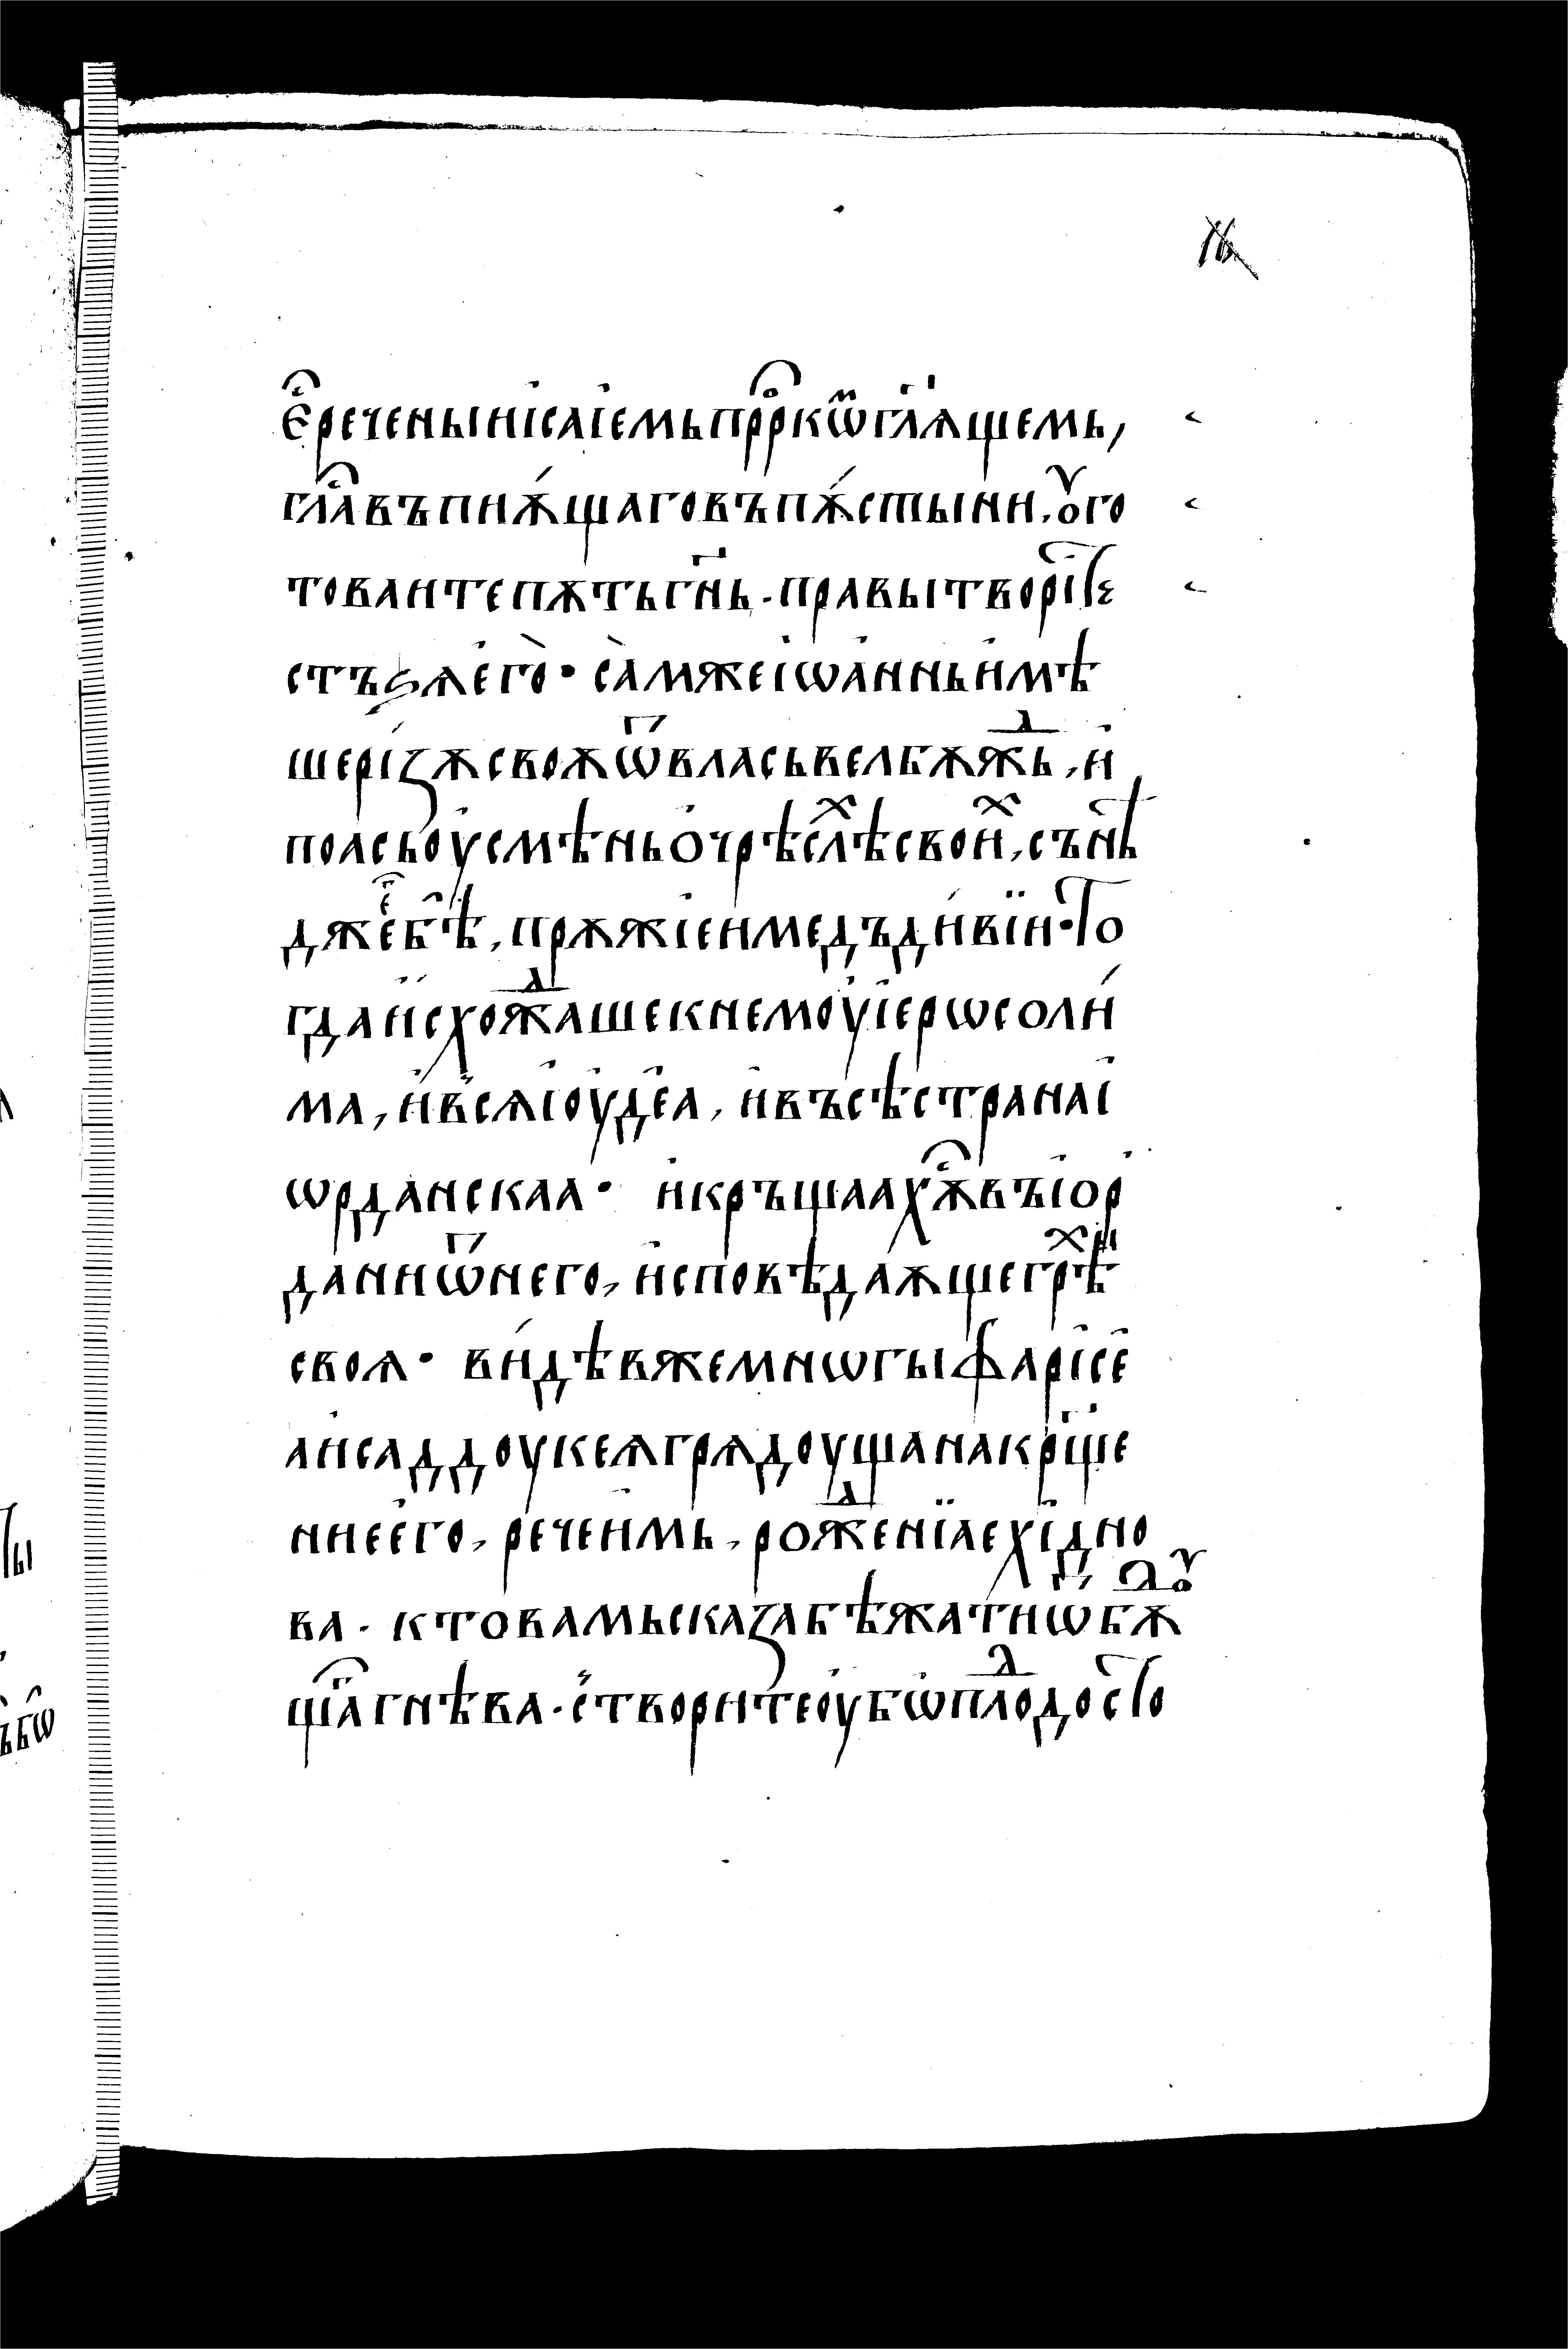 16
є҆с҃ реченыи і҆саіемь пррⷪ҇кѡⷨ гл҃ѧщемь,
глаⷭ҇ въпиѫ́щаго въ пѫ́стыни. ᲂуго
товаите пѫть гн҃ь. правы твориⷮ҇е
стъѕѧ е҆го̀· са̀м же і҆ѡа́ннь и҆мѣ
ше рі́зѫ своѫ ѿ влась велбѫжⷣь, и҆
поась оу҆смѣнь о҆ чрѣслⷯѣ свои҆ⷯ, сънѣ
д же е҆г҃ бѣ̑, прѫжіе и медъ ди́вїи· То
гда и҆ схожⷣааше к немоу і҆ерѡсоли́
ма, и҆ в҆сѧ і҆оуде҆а, и҆ въсѣ страна і҆
ѡрданскаа· и҆ кръщаахѫⷭ҇ въ і҆ор
дани ѿ него, и҆споквѣдаѫще грѣⷯи
своѧ· ви́дѣв же мнѡгы фарі҆се҆
а и҆ саддоукеѧ грѧдоуща на крщ҃е
ние е҆го, рече и҆мь, рожⷣенїа е҆хі҆дно
ва. кто вамь сказа бѣжати ѿ бѫⷣᲂу
щаⷢ҇ гнѣва. с҆творите оу҆бѡ плодⷣ досто